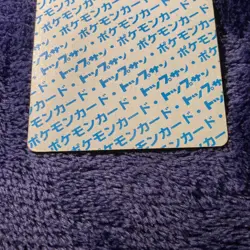 ポケモンカード・トップサン
トップサン・ポケモンカード
ポケモンカード・トップサン
トップサン・ポケモンカード
ポケモンカード・トップサン
ポケモンカード